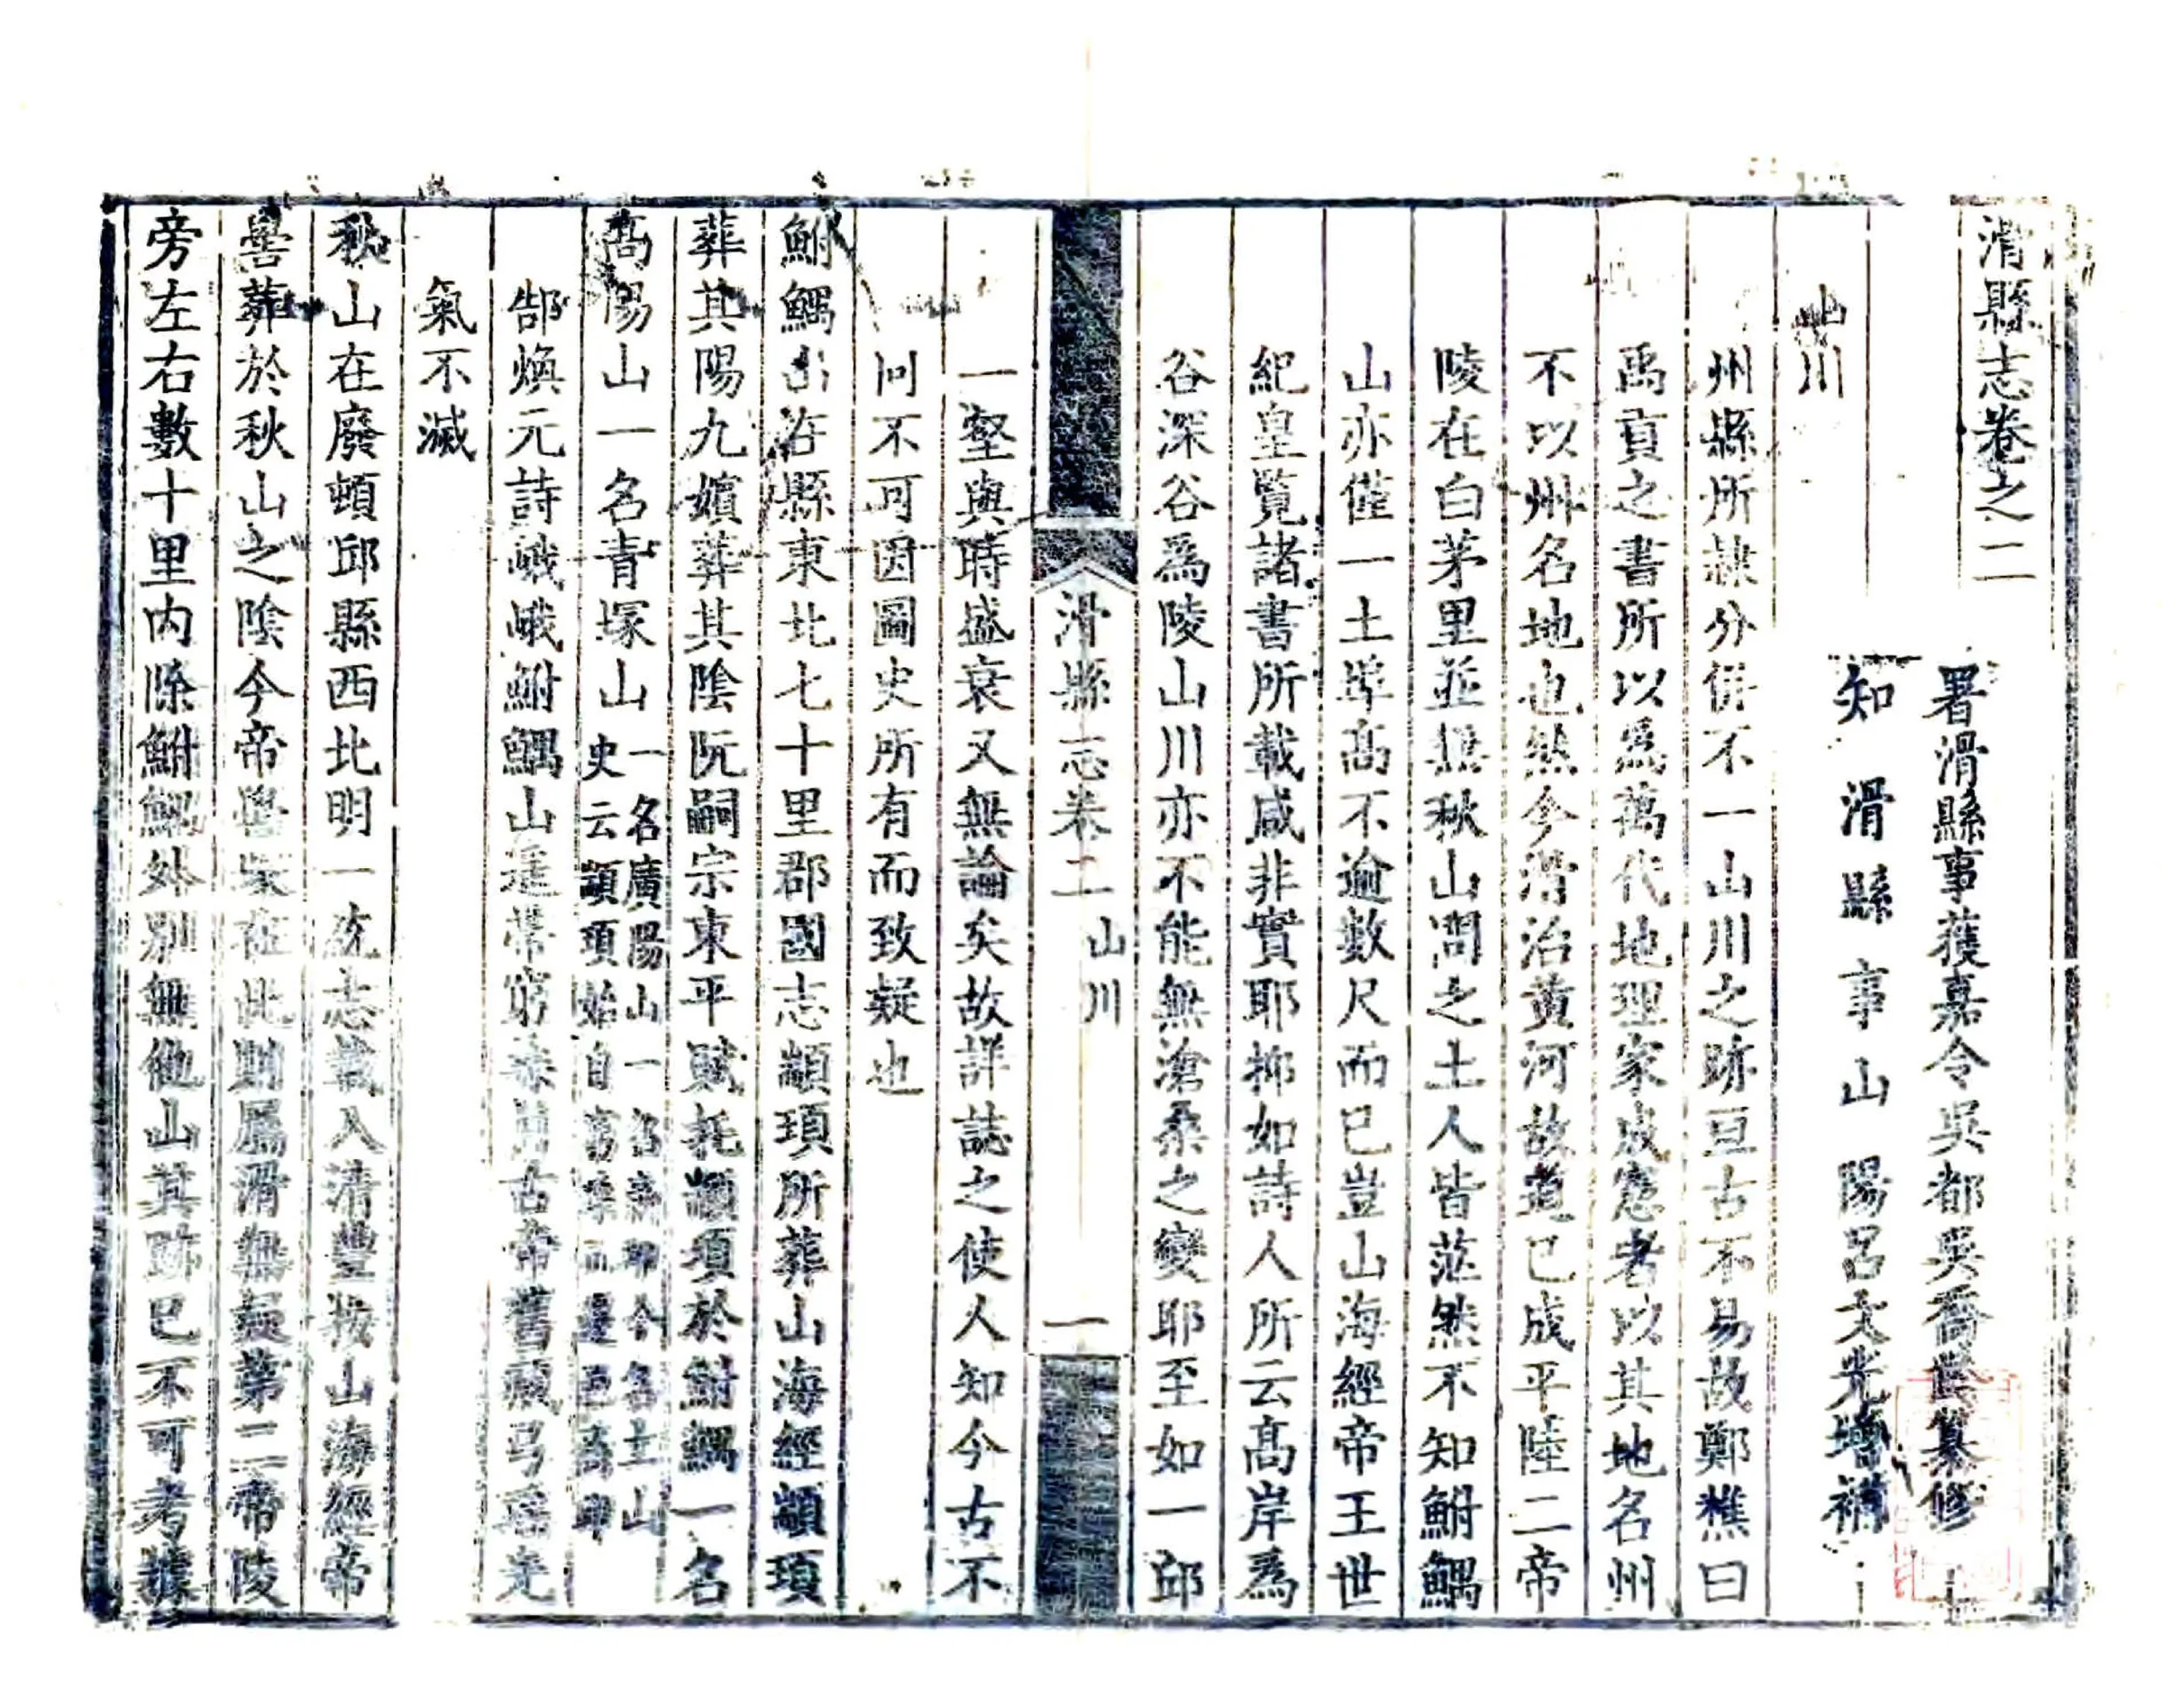 滑縣志卷之二
署滑縣事獲嘉令吳都吳喬世纂修
知滑縣事山陽呂大光增補
山川
州縣所隸分併不一山川之跡亘古不易故鄭樵曰
禹貢之書所以爲萬代地理家成憲者以其地名州
不以州名地也然今滑治黃河故道已成平陸二帝
陵在白茅里並無秋山問之土人皆茫然不知鮒鰅
山亦僅一土阜高不逾數尺而已豈山海經帝王世
紀皇覽諸書所載咸非實耶抑如詩人所云高岸爲
谷深谷爲陵山川亦不能無滄桑之變耶至如一邱
滑縣志卷二 山川 一
一壑與時盛衰又無論矣故詳誌之使人知今古不
同不可因圖史所有而致疑也
鮒鰅山在縣東北七十里郡國志顓頊所葬山海經顓頊
葬其陽九嬪葬其陰阮嗣宗東平賦托顓頊於鮒鰅一名
高陽山一名青塚山一名廣陽山一名 卽今名土山
史云顓頊始自窮 而 卽
郜煥元詩峨峨鮒鰅山 帶窮 古帝舊 弓 光
氣不滅
秋山在廢頓邱縣西北明一統志載入清豐按山海經帝
嚳葬於秋山之陰今帝嚳 在此則屬滑無疑第二帝陵
旁左右數十里內除鮒鰅外別無他山其跡已不可考據